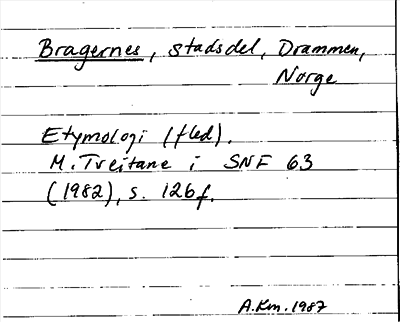 Bragernes, stadsdel, Drammen,
Norge
Etymologi (fled).
M. Tveitane i SNF 63
(1982), s. 126f.
A.Km. 1987